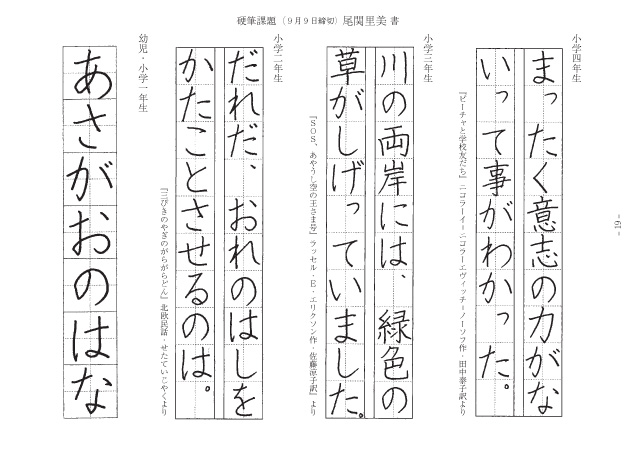 硬筆課題（９月９日締切）尾関里美 書
小学四年生
まったく意志の力がな
いって事がわかった。
『ビーチャと学校友だち』ニコラーイ＝ニコラーエヴィッチ＝ノーソフ作・田中泰子訳より
小学三年生
川の両岸には、緑色の
草がしげっていました。
『ＳＯＳ、あやうし空の王さま号』ラッセル・Ｅ・エリクソン作・佐藤涼子訳』より
小学二年生
だれだ、おれのはしを
かたことさせるのは。
『三びきのやぎのがらがらどん』北欧民話・せたていじやくより
幼児・小学一年生
あさがおのはな
- 19 -